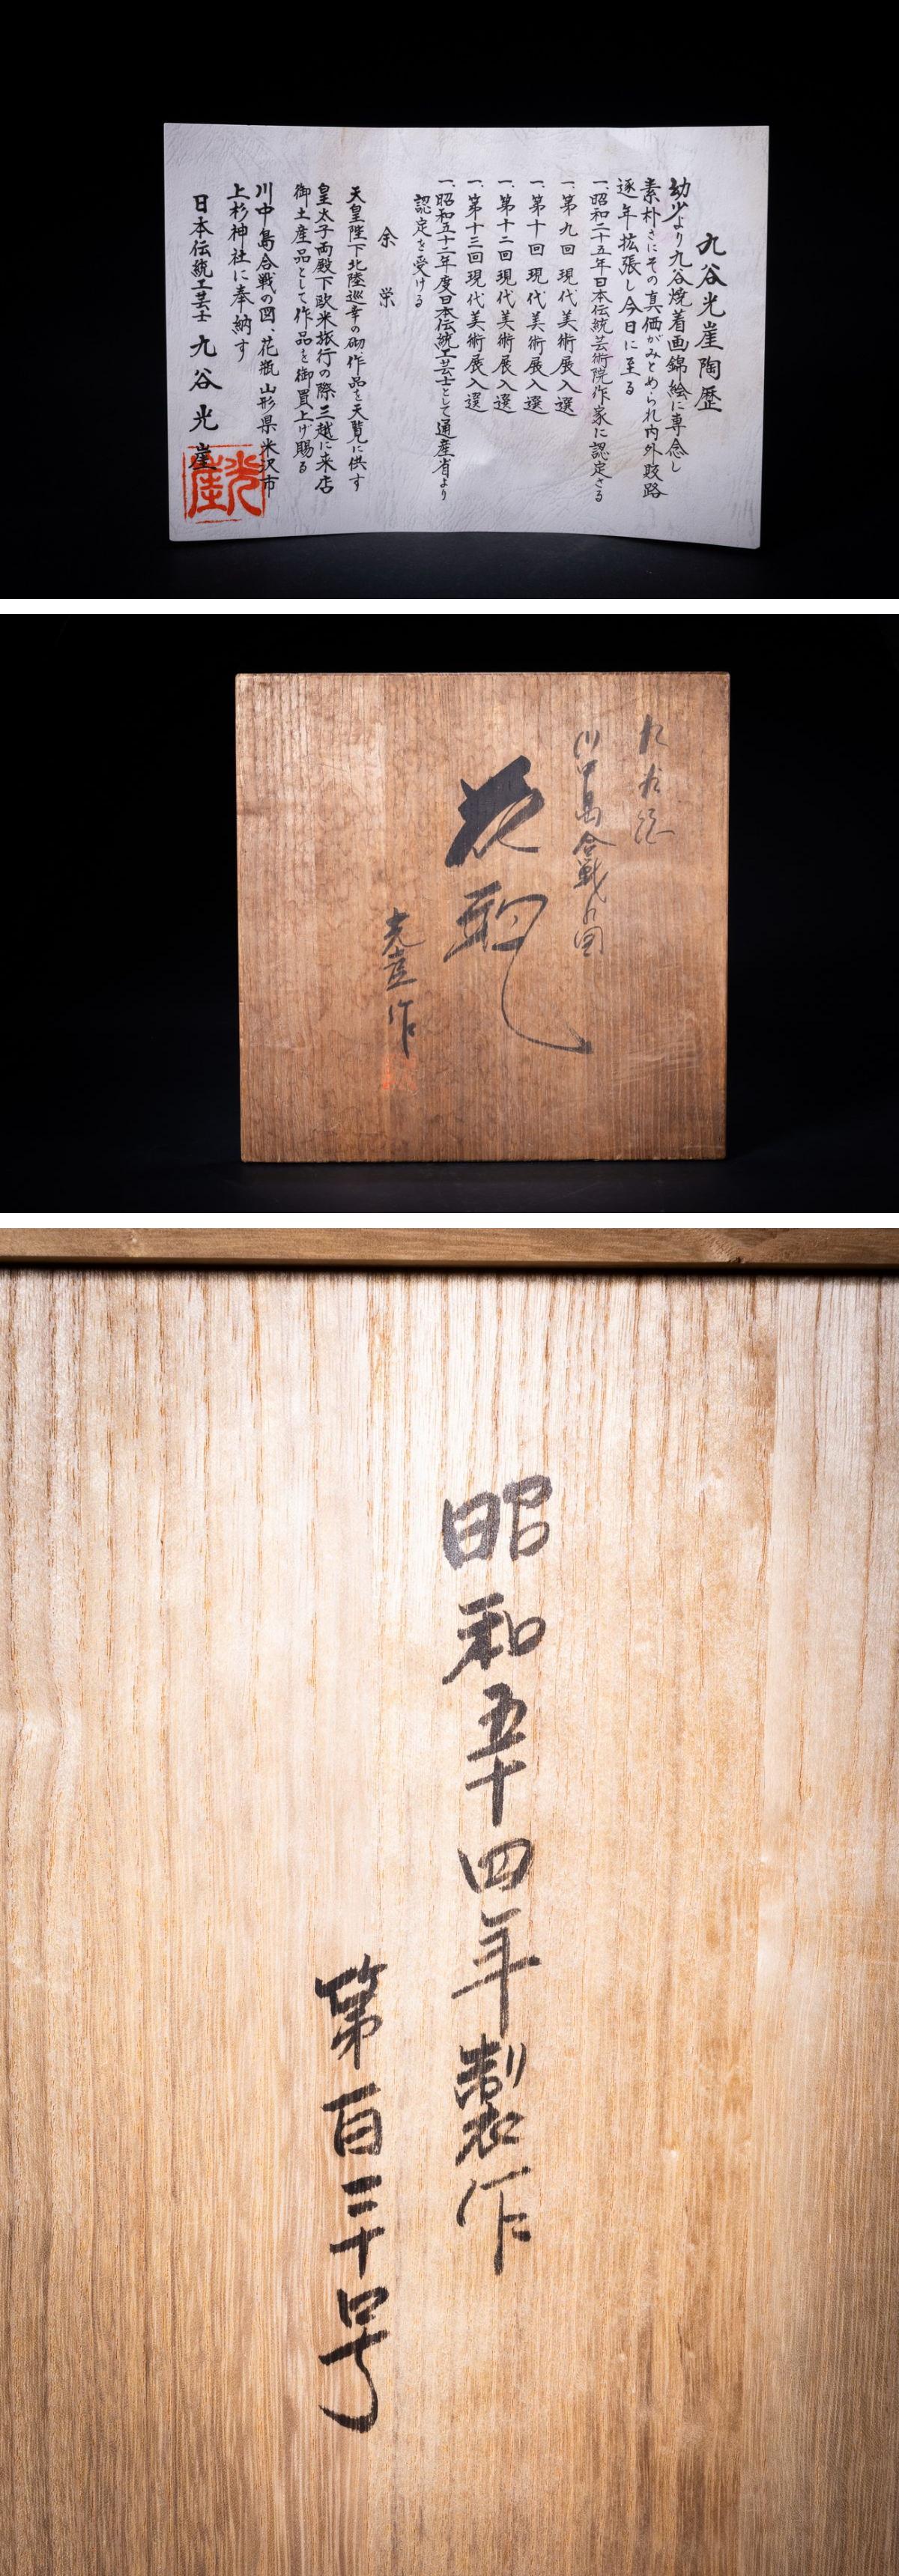 九谷光崖陶歴
幼少より九谷焼着画錦絵に専念し
素朴さにその真価がみとめられ内外販路
逐年拡張し今日に至る
一、昭和二十五年日本伝統芸術院作家に認定さる
一、第九回現代美術展入選
一、第十回現代美術展入選
一、第十二回現代美術展入選
一、第十三回現代美術展入選
一、昭和五十二年度日本伝統工芸士として通産省より
認定を受ける
余栄
天皇陛下北陸巡幸の砌作品を天覧に供す
皇太子両殿下欧米旅行の際三越に来店
御土産品として作品を御買上げ賜る
川中島合戦の図、花瓶山形県米沢市
上杉神社に奉納す
日本伝統工芸士九谷光崖
光崖
九谷焼
川中島合戦乃図
花瓶
光崖作
昭和五十四年製作
第百三十号